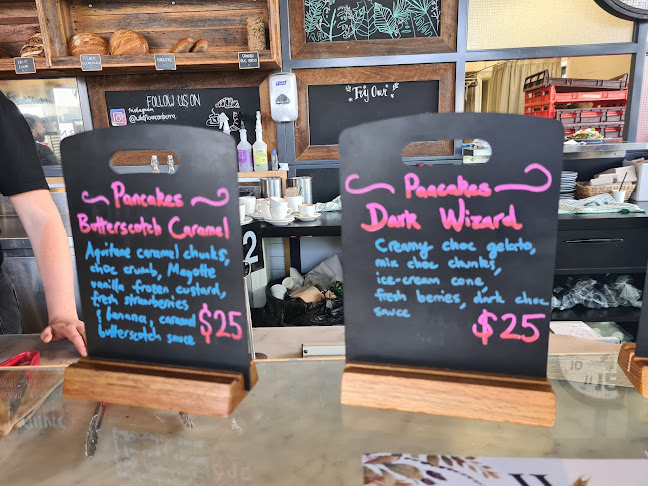 FOLLOW US ON
Instagram
@wildflourcanberra
Try Our
Pancakes
Butterscotch Caramel
Aquitane caramel chunks,
choc crumb, Mayotte
vanilla frozen custard,
fresh strawberries
& banana, caramel
butterscotch sauce
$25
Pancakes
Dark Wizard
Creamy choc gelato,
mix choc chunks,
ice-cream cone,
fresh berries, dark choc
sauce
$25
2